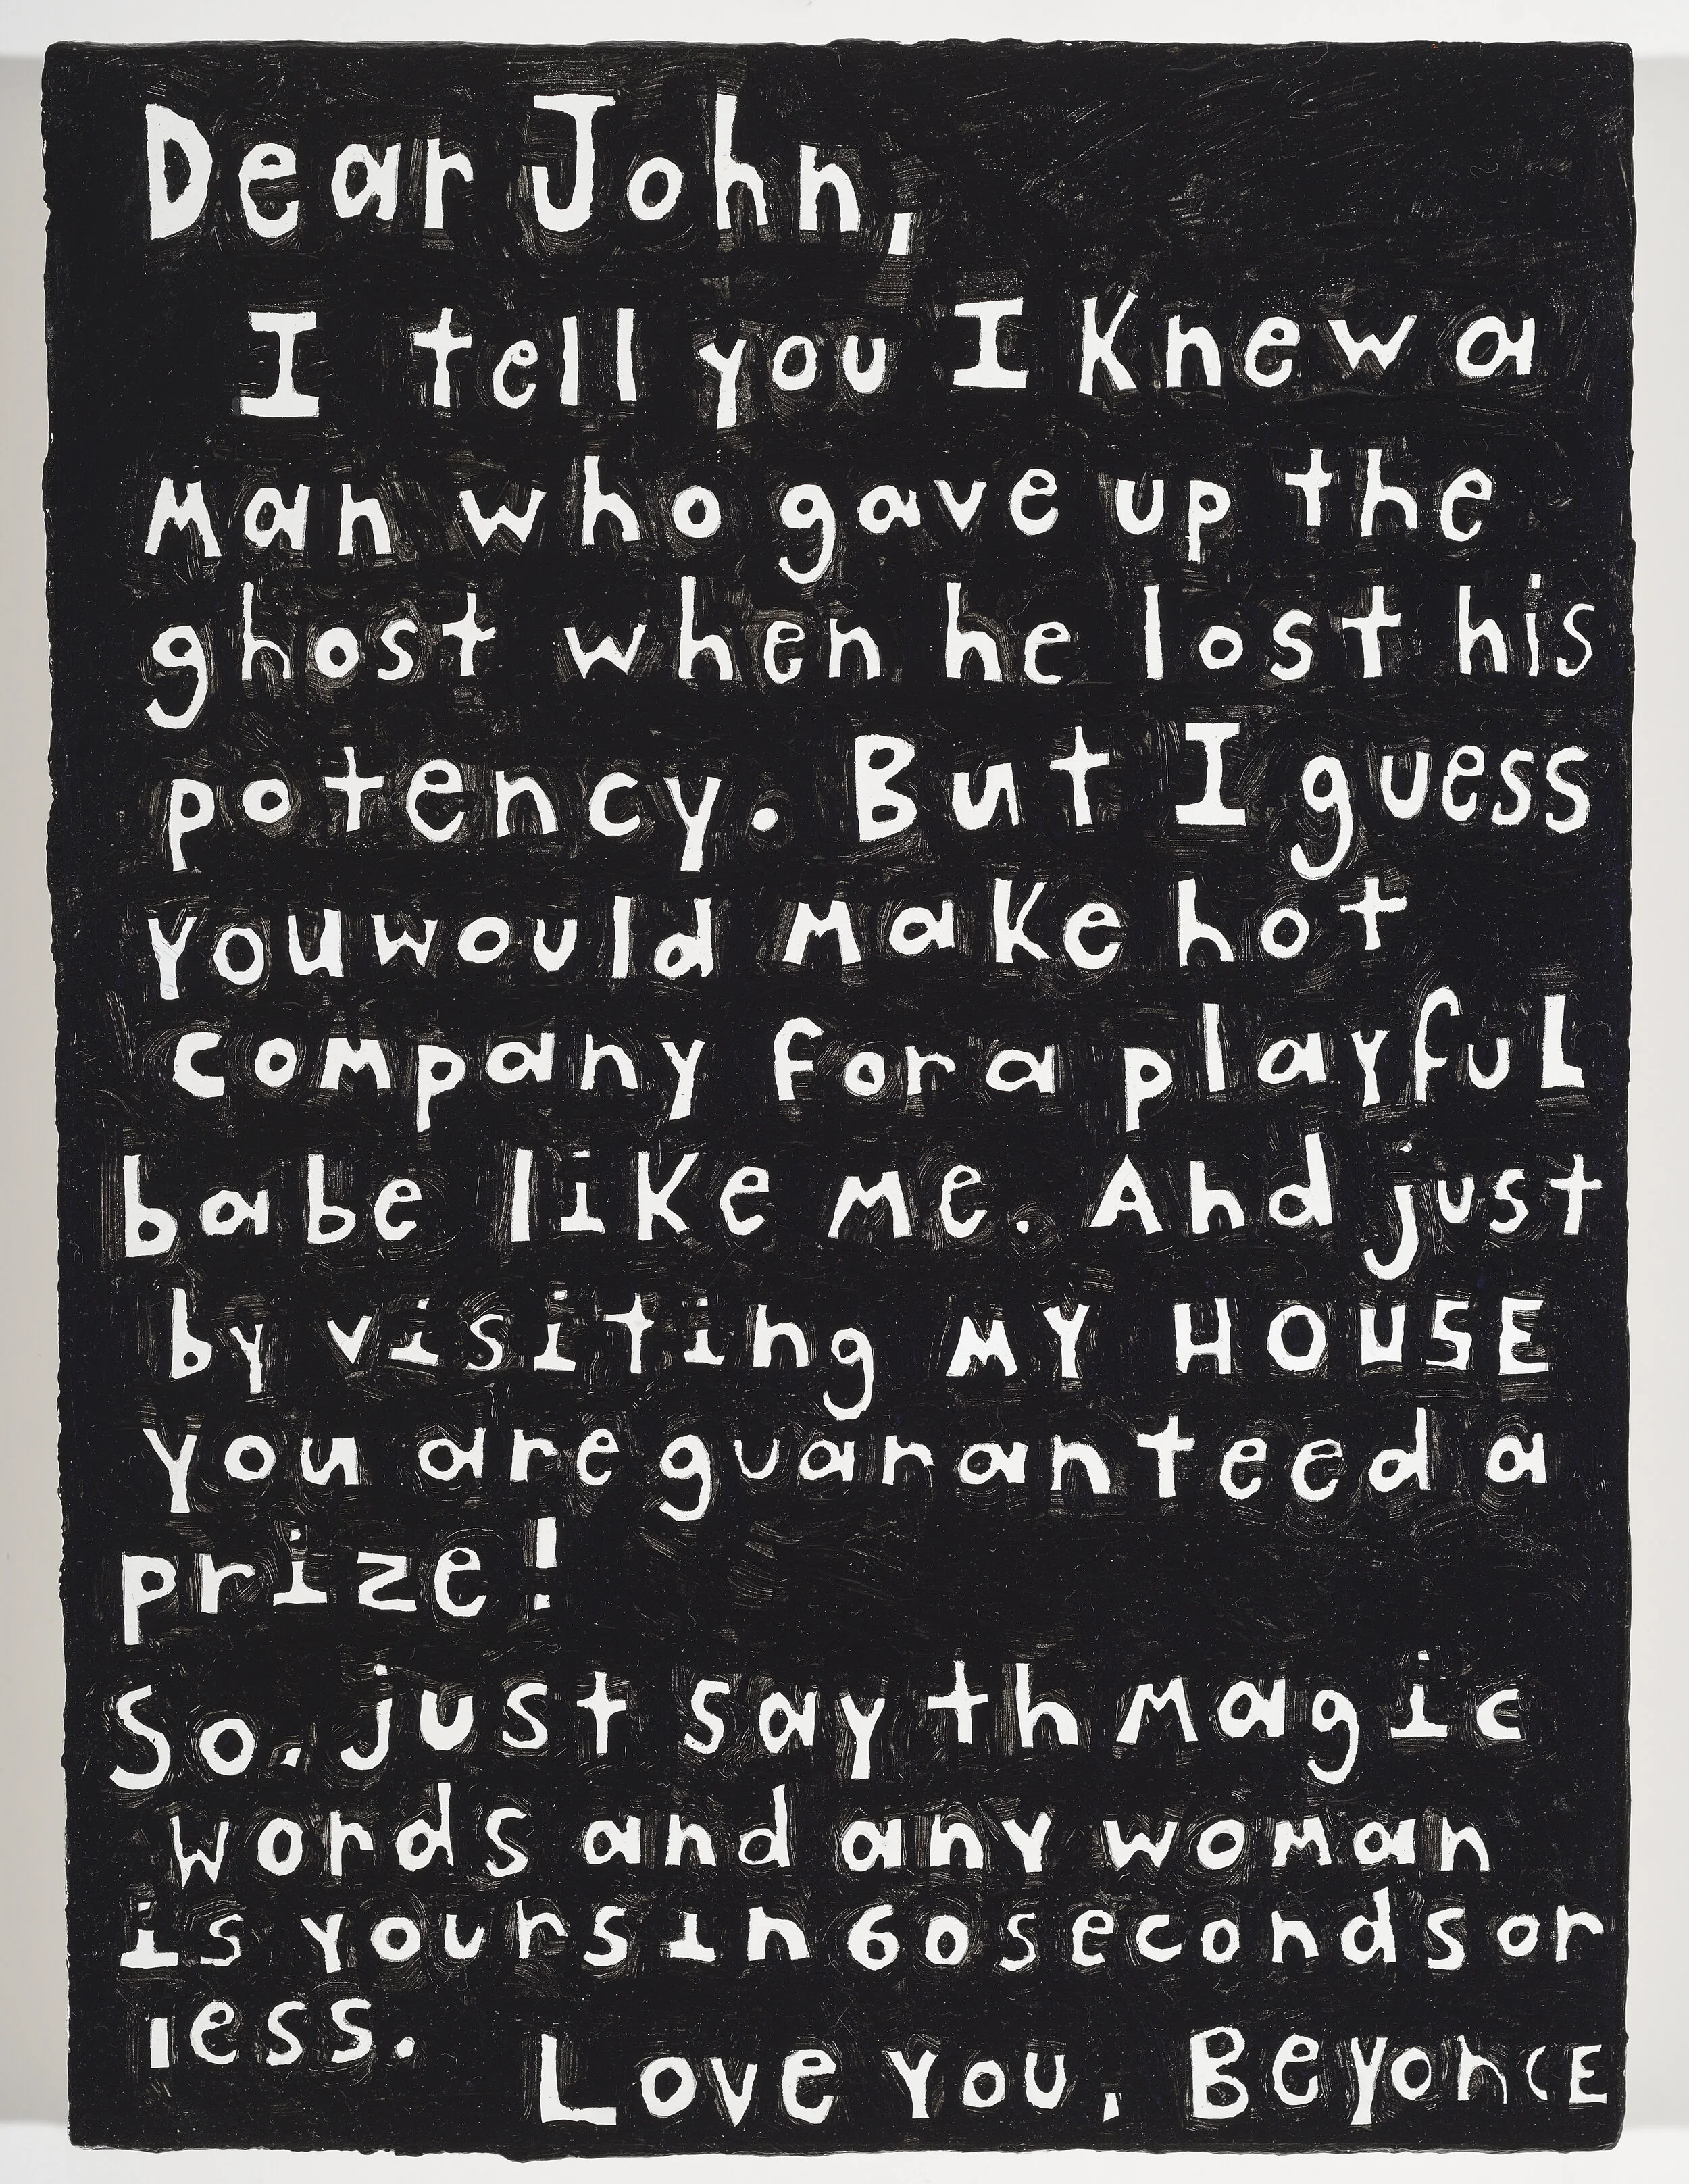 Dear John,
I tell you I Knew a
man who gave up the
ghost when he lost his
potency. But I guess
you would make hot
company for a playful
babe like me. And just
by visiting MY HOUSE
you are guaranteed a
prize!
So, just say th magic
words and any woman
is yours in 60 seconds or
less.
Love You, BeyoncE